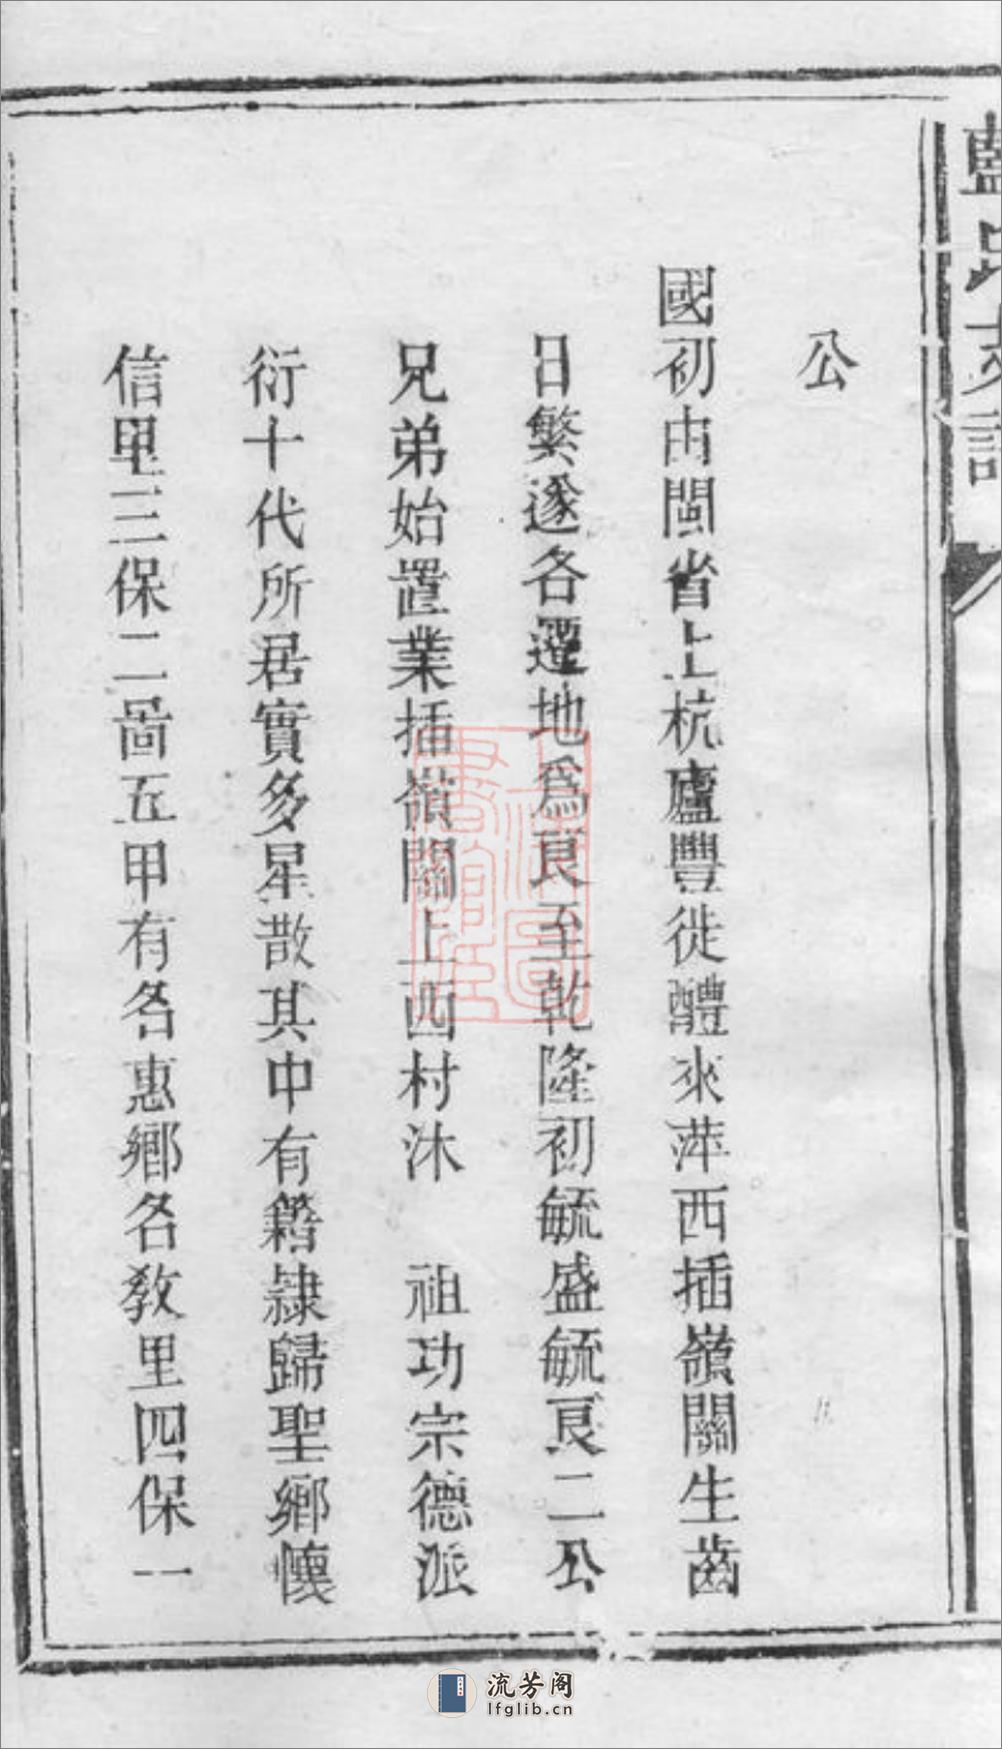 藍氏支譜
公
國初由閩省上杭廬豐徙醴來萍西插嶺關生齒
日繁遂各遷地爲良至乾隆初毓盛毓良二公
兄弟始置業插嶺關上西村沐 祖功宗德派
衍十代所居實多星散其中有籍隸歸聖鄉懷
信里三保二啚五甲有名惠鄉名教里四保一
流芳阁
lfglib.cn